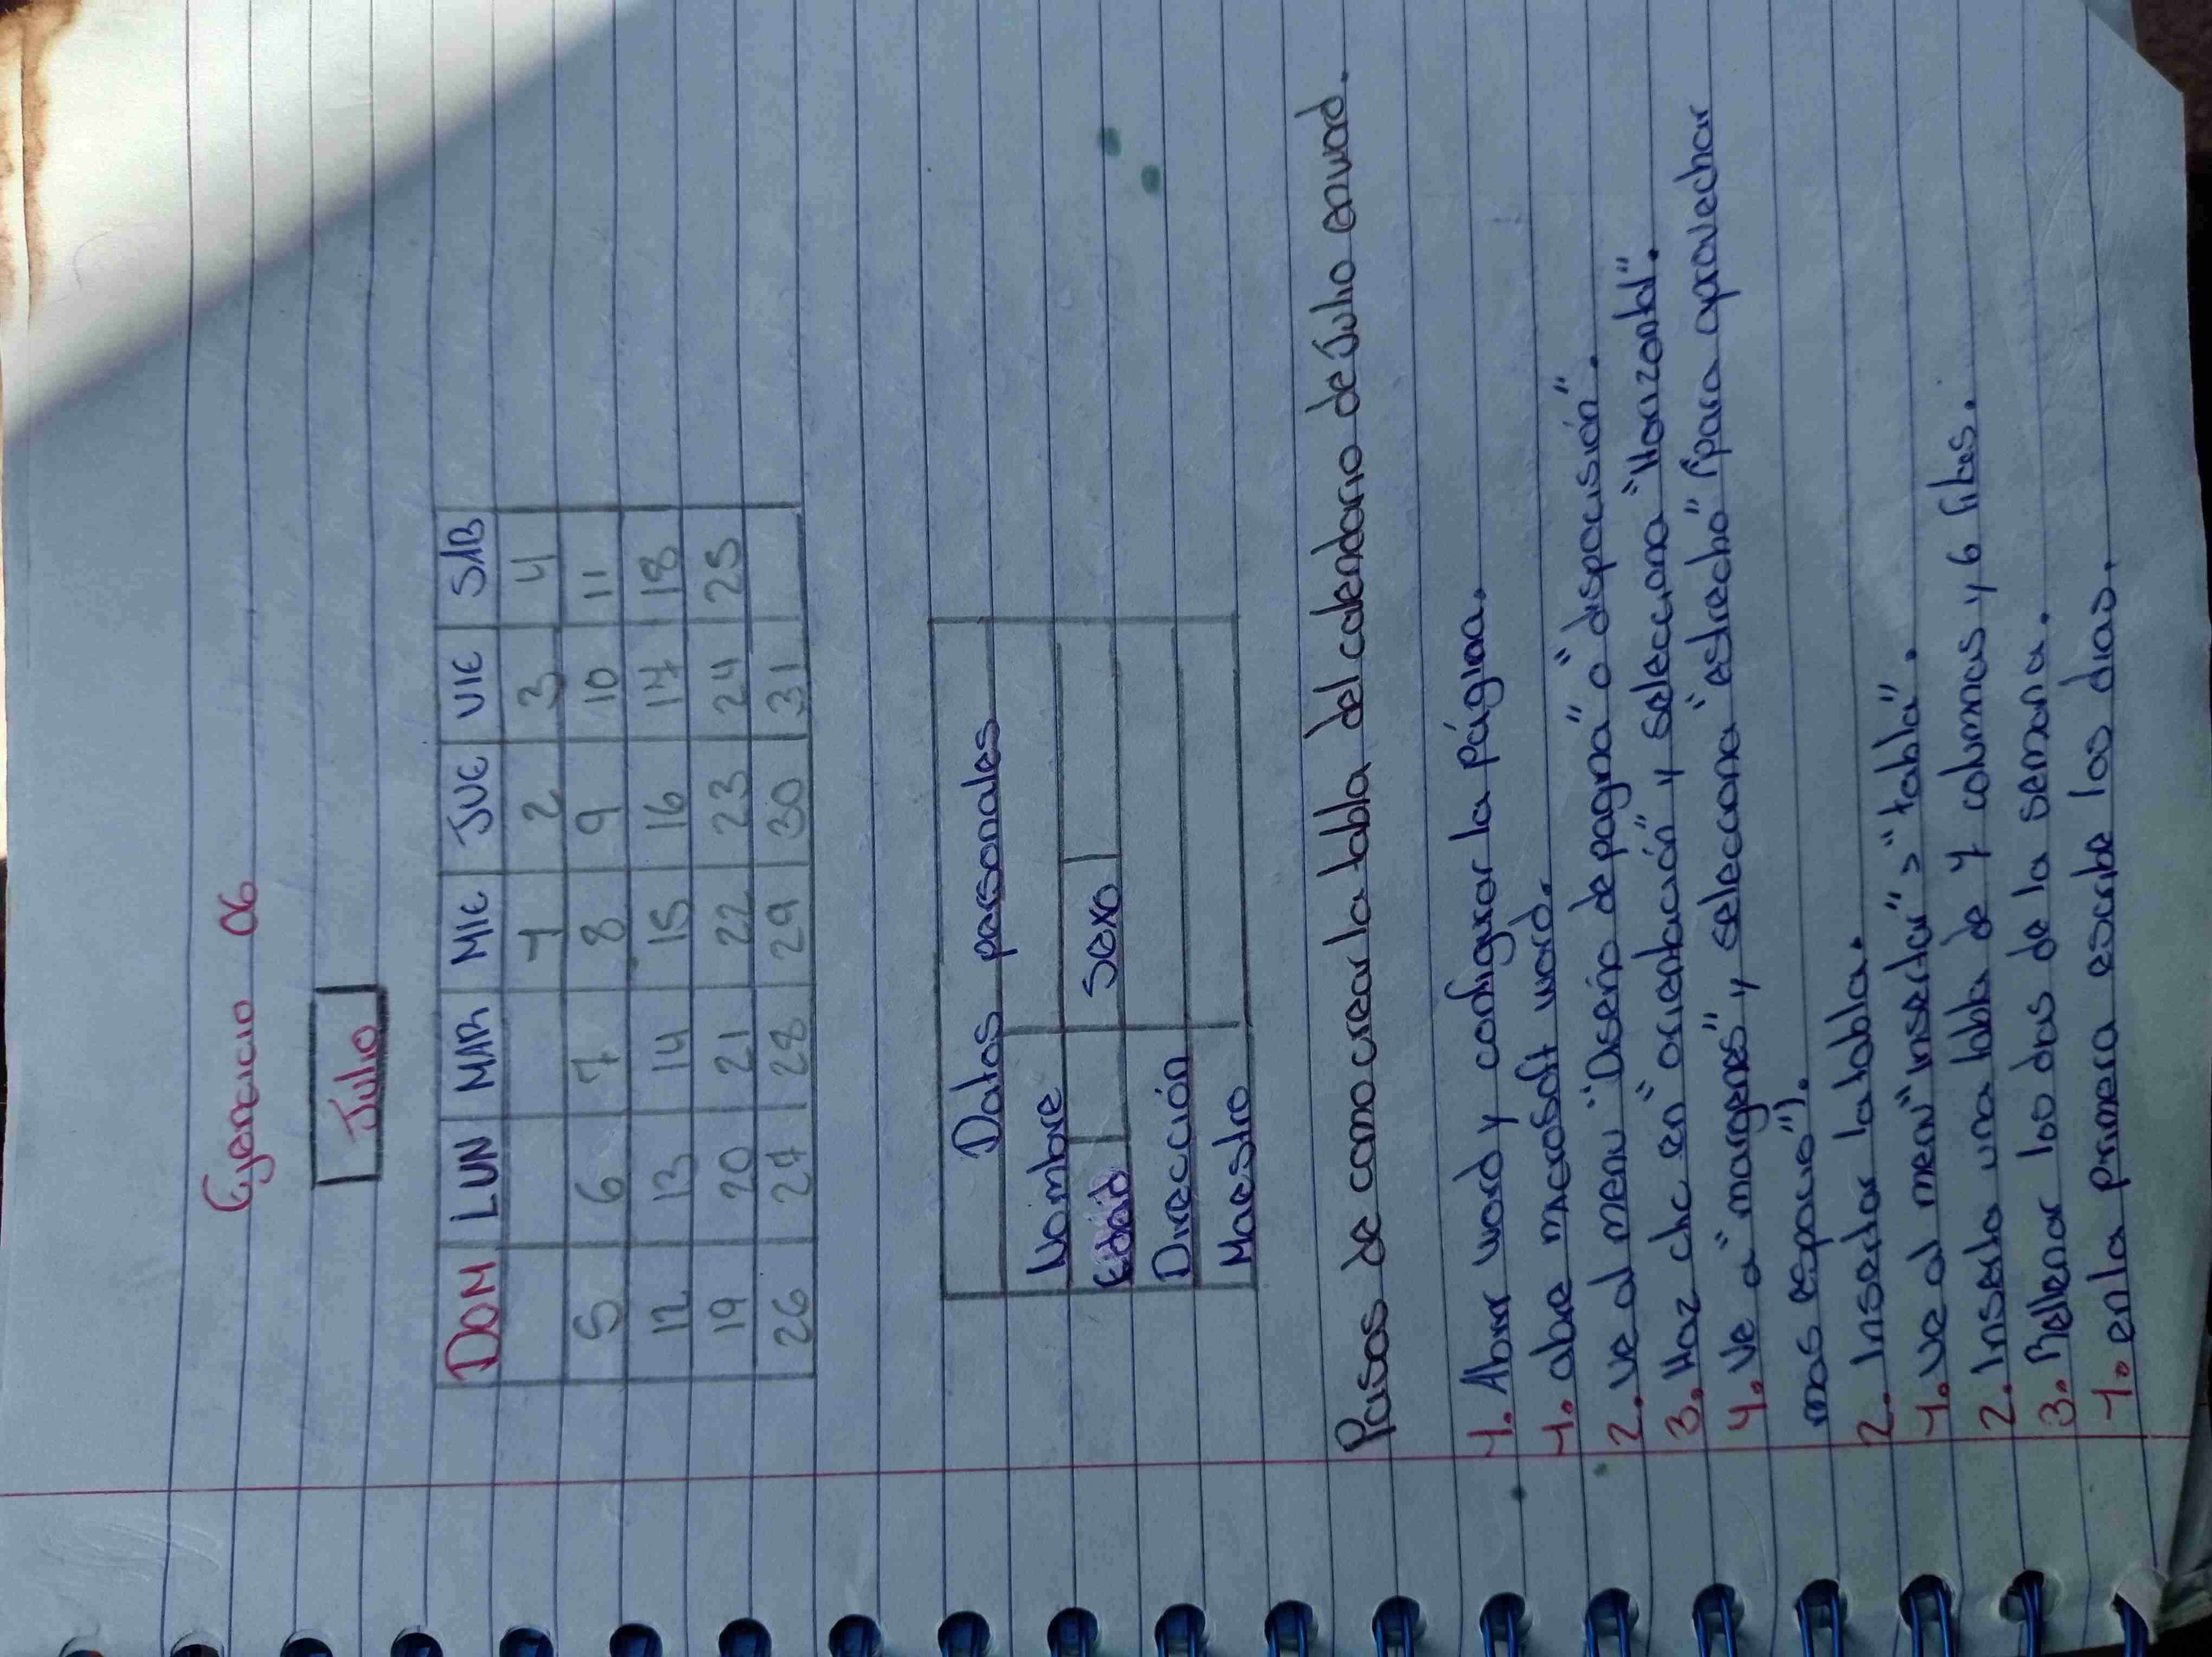 Ejercicio 06
Julio
DOM LUN MAR MIE JUE VIE SAB
1 2 3 4
5 6 7 8 9 10 11
12 13 14 15 16 17 18
19 20 21 22 23 24 25
26 27 28 29 30 31
Datos personales
Nombre
Edad Sexo
Dirección
Maestro
Pasos de como crear la tabla del calendario de Julio en word.
1. Abrir word y configurar la página.
1. abre microsoft word.
2. ve al menu "Deseño de pagina" o "dispocisión".
3. Haz clic en "orientación" y selecciona "Horizontal".
4. Ve a "margenes" y selecciona "estrecho" (para aprovechar
mas espacio").
2. Insertar la tabla.
1. ve al menu "insertar" > "tabla".
2. Inserta una tabla de 7 columnas y 6 filas.
3. Rellenar los dias de la semana.
1. en la primera escribe los dias.